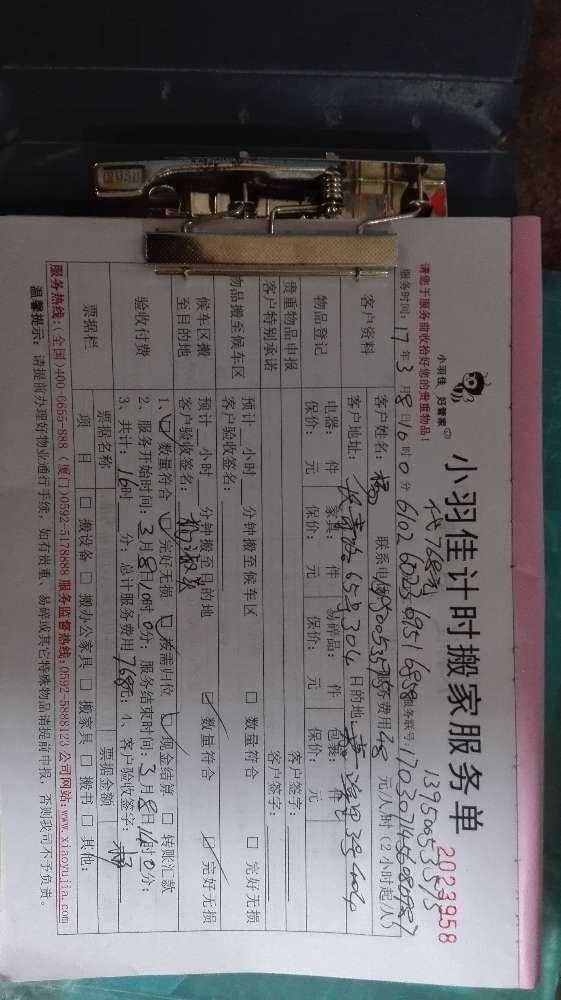 小羽佳 好管家
小羽佳计时搬家服务单
2023958
13950053575
请您于服务前收拾好您的贵重物品!
代768元
服务时间: 17 年 3 月 8 日 10 时 0 分
服务联号:
客户资料
客户姓名: 杨 联系电话: 服务费用 48 元/人/时 (2小时起/人)
客户地址: 65号304 目的地: 3号404
物品登记
电器: 件 家具: 件 易碎品: 件 包裹: 件
保价: 元 保价: 元 保价: 元 保价: 元
贵重物品申报 客户签字:
客户特别承诺 客户签字:
物品搬至候车区
预计 小时 分钟搬至候车区 □ 数量符合 □ 完好无损
客户验收签名:
候车区搬至目的地
预计 小时 分钟搬至目的地 ☑ 数量符合 ☑ 完好无损
客户验收签名: 杨淑
验收付费
1、☑ 数量符合 ☑ 完好无损 ☑ 按需归位 ☑ 现金结算 □ 转账汇款
2、服务开始时间: 3 月 8 日 10 时 0 分; 服务结束时间: 3 月 8 日 14 时 0 分;
3、共计: 16 时 分; 总计服务费用 768 元; 4、客户验收签字: 杨
票据栏
票据名称 票据金额
项 目 □ 搬设备 □ 搬办公家具 □ 搬家具 □ 搬书 □ 其他:
服务热线: (全国)400-6655-888 (厦门)0592-5178888 服务监督热线:0592-5888123 公司网站: www.xiaoyujia.com
温馨提示: 请提前办理好物业通行手续, 如有贵重、易碎或其它特殊物品请提前申报, 否则我司不予负责。